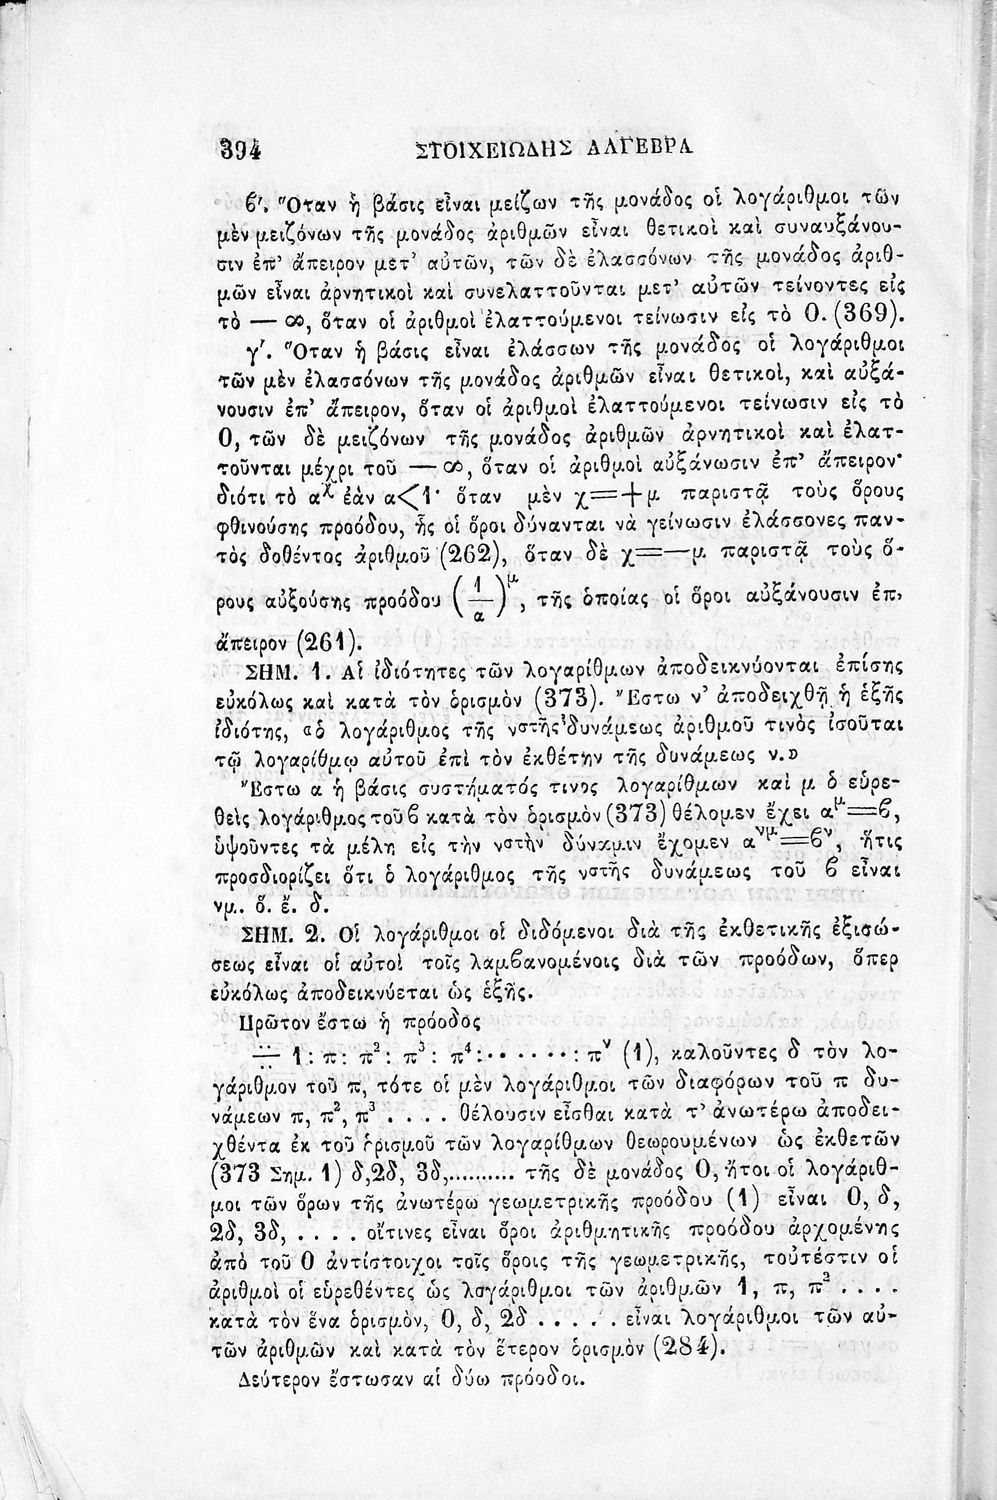 394 ΣΤΟΙΧΕΙΩΔΗΣ ΑΛΓΕΒΡΑ
ϐ′. Ὅταν ἡ βάσις εἶναι μείζων τῆς μονάδος οἱ λογάριθμοι τῶν
μὲν μειζόνων τῆς μονάδος ἀριθμῶν εἶναι θετικοὶ καὶ συναυξάνου-
σιν ἐπ’ ἄπειρον μετ’ αὐτῶν, τῶν δὲ ἐλασσόνων τῆς μονάδος ἀριθ-
μῶν εἶναι ἀρνητικοὶ καὶ συνελαττοῦνται μετ’ αὐτῶν τείνοντες εἰς
τὸ — ∞, ὅταν οἱ ἀριθμοὶ ἐλαττούμενοι τείνωσιν εἰς τὸ 0. (369).
γ′. Ὅταν ἡ βάσις εἶναι ἐλάσσων τῆς μονάδος οἱ λογάριθμοι
τῶν μὲν ἐλασσόνων τῆς μονάδος ἀριθμῶν εἶναι θετικοὶ, καὶ αὐξά-
νουσιν ἐπ’ ἄπειρον, ὅταν οἱ ἀριθμοὶ ἐλαττούμενοι τείνωσιν εἰς τὸ
0, τῶν δὲ μειζόνων τῆς μονάδος ἀριθμῶν ἀρνητικοὶ καὶ ἐλατ-
τοῦνται μέχρι τοῦ — ∞, ὅταν οἱ ἀριθμοὶ αὐξάνωσιν ἐπ’ ἄπειρον·
διότι τὸ α^χ ἐὰν α<1· ὅταν μὲν χ=+μ παριστᾷ τοὺς ὅρους
φθινούσης προόδου, ἧς οἱ ὅροι δύνανται νὰ γείνωσιν ἐλάσσονες παν-
τὸς δοθέντος ἀριθμοῦ (262), ὅταν δὲ χ=—μ παριστᾷ τοὺς ὅ-
ρους αὐξούσης προόδου (1/α)^μ, τῆς ὁποίας οἱ ὅροι αὐξάνουσιν ἐπ’
ἄπειρον (261).
ΣΗΜ. 1. Αἱ ἰδιότητες τῶν λογαρίθμων ἀποδεικνύονται ἐπίσης
εὐκόλως καὶ κατὰ τὸν ὁρισμὸν (373). Ἔστω ν’ ἀποδειχθῇ ἡ ἑξῆς
ἰδιότης, «ὁ λογάριθμος τῆς νστῆς δυνάμεως ἀριθμοῦ τινὸς ἰσοῦται
τῷ λογαρίθμῳ αὐτοῦ ἐπὶ τὸν ἐκθέτην τῆς δυνάμεως ν.»
Ἔστω α ἡ βάσις συστήματός τινος λογαρίθμων καὶ μ ὁ εὑρε-
θεὶς λογάριθμος τοῦ ϐ κατὰ τὸν ὁρισμὸν (373) θέλομεν ἔχει α^μ=ϐ,
ὑψοῦντες τὰ μέλη εἰς τὴν νστὴν δύναμιν ἔχομεν α^νμ=ϐ^ν, ἥτις
προσδιορίζει ὅτι ὁ λογάριθμος τῆς νστῆς δυνάμεως τοῦ ϐ εἶναι
νμ. ὅ. ἔ. δ.
ΣΗΜ. 2. Οἱ λογάριθμοι οἱ διδόμενοι διὰ τῆς ἐκθετικῆς ἐξισώ-
σεως εἶναι οἱ αὐτοὶ τοῖς λαμϐανομένοις διὰ τῶν προόδων, ὅπερ
εὐκόλως ἀποδεικνύεται ὡς ἑξῆς.
Πρῶτον ἔστω ἡ πρόοδος
∺ 1 : π : π² : π³ : π⁴ : · · · · · · : π^ν (1), καλοῦντες δ τὸν λο-
γάριθμον τοῦ π, τότε οἱ μὲν λογάριθμοι τῶν διαφόρων τοῦ π δυ-
νάμεων π, π², π³ . . . . θέλουσιν εἶσθαι κατὰ τ’ ἀνωτέρω ἀποδει-
χθέντα ἐκ τοῦ ὁρισμοῦ τῶν λογαρίθμων θεωρουμένων ὡς ἐκθετῶν
(373 Σημ. 1) δ, 2δ, 3δ,.......... τῆς δὲ μονάδος 0, ἤτοι οἱ λογάριθ-
μοι τῶν ὅρων τῆς ἀνωτέρω γεωμετρικῆς προόδου (1) εἶναι 0, δ,
2δ, 3δ, . . . . οἵτινες εἶναι ὅροι ἀριθμητικῆς προόδου ἀρχομένης
ἀπὸ τοῦ 0 ἀντίστοιχοι τοῖς ὅροις τῆς γεωμετρικῆς, τοὐτέστιν οἱ
ἀριθμοὶ οἱ εὑρεθέντες ὡς λογάριθμοι τῶν ἀριθμῶν 1, π, π² . . . .
κατὰ τὸν ἕνα ὁρισμὸν, 0, δ, 2δ . . . . . εἶναι λογάριθμοι τῶν αὐ-
τῶν ἀριθμῶν καὶ κατὰ τὸν ἕτερον ὁρισμὸν (284).
Δεύτερον ἔστωσαν αἱ δύω πρόοδοι.